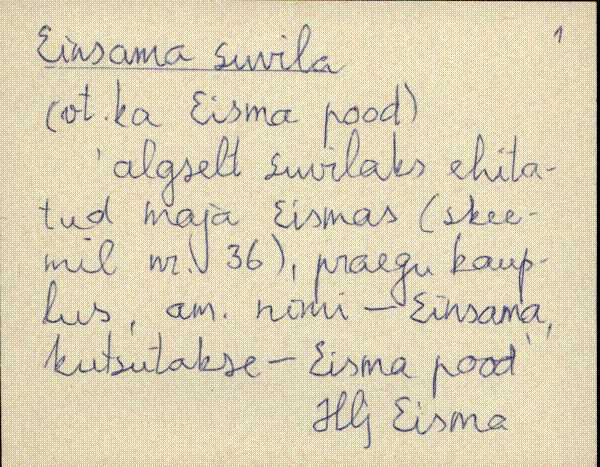 1
Einsama suvila
(vt. ka Eisma pood)
'algselt suvilaks ehita-
tud maja Eismas (skee-
mil nr. 36), praegu kaup-
lus, am. nimi – Einsama,
kutsutakse – Eisma pood'
Hlj Eisma